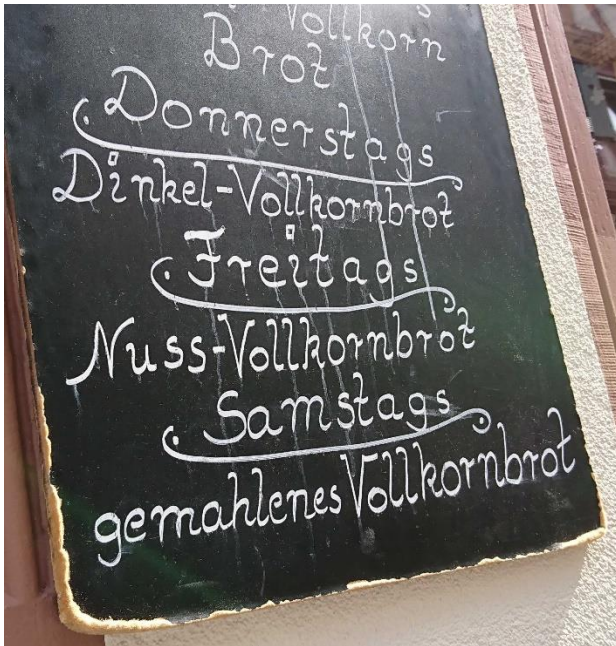 Vollkorn
Brot
Donnerstags
Dinkel-Vollkornbrot
Freitags
Nuss-Vollkornbrot
Samstags
gemahlenes Vollkornbrot